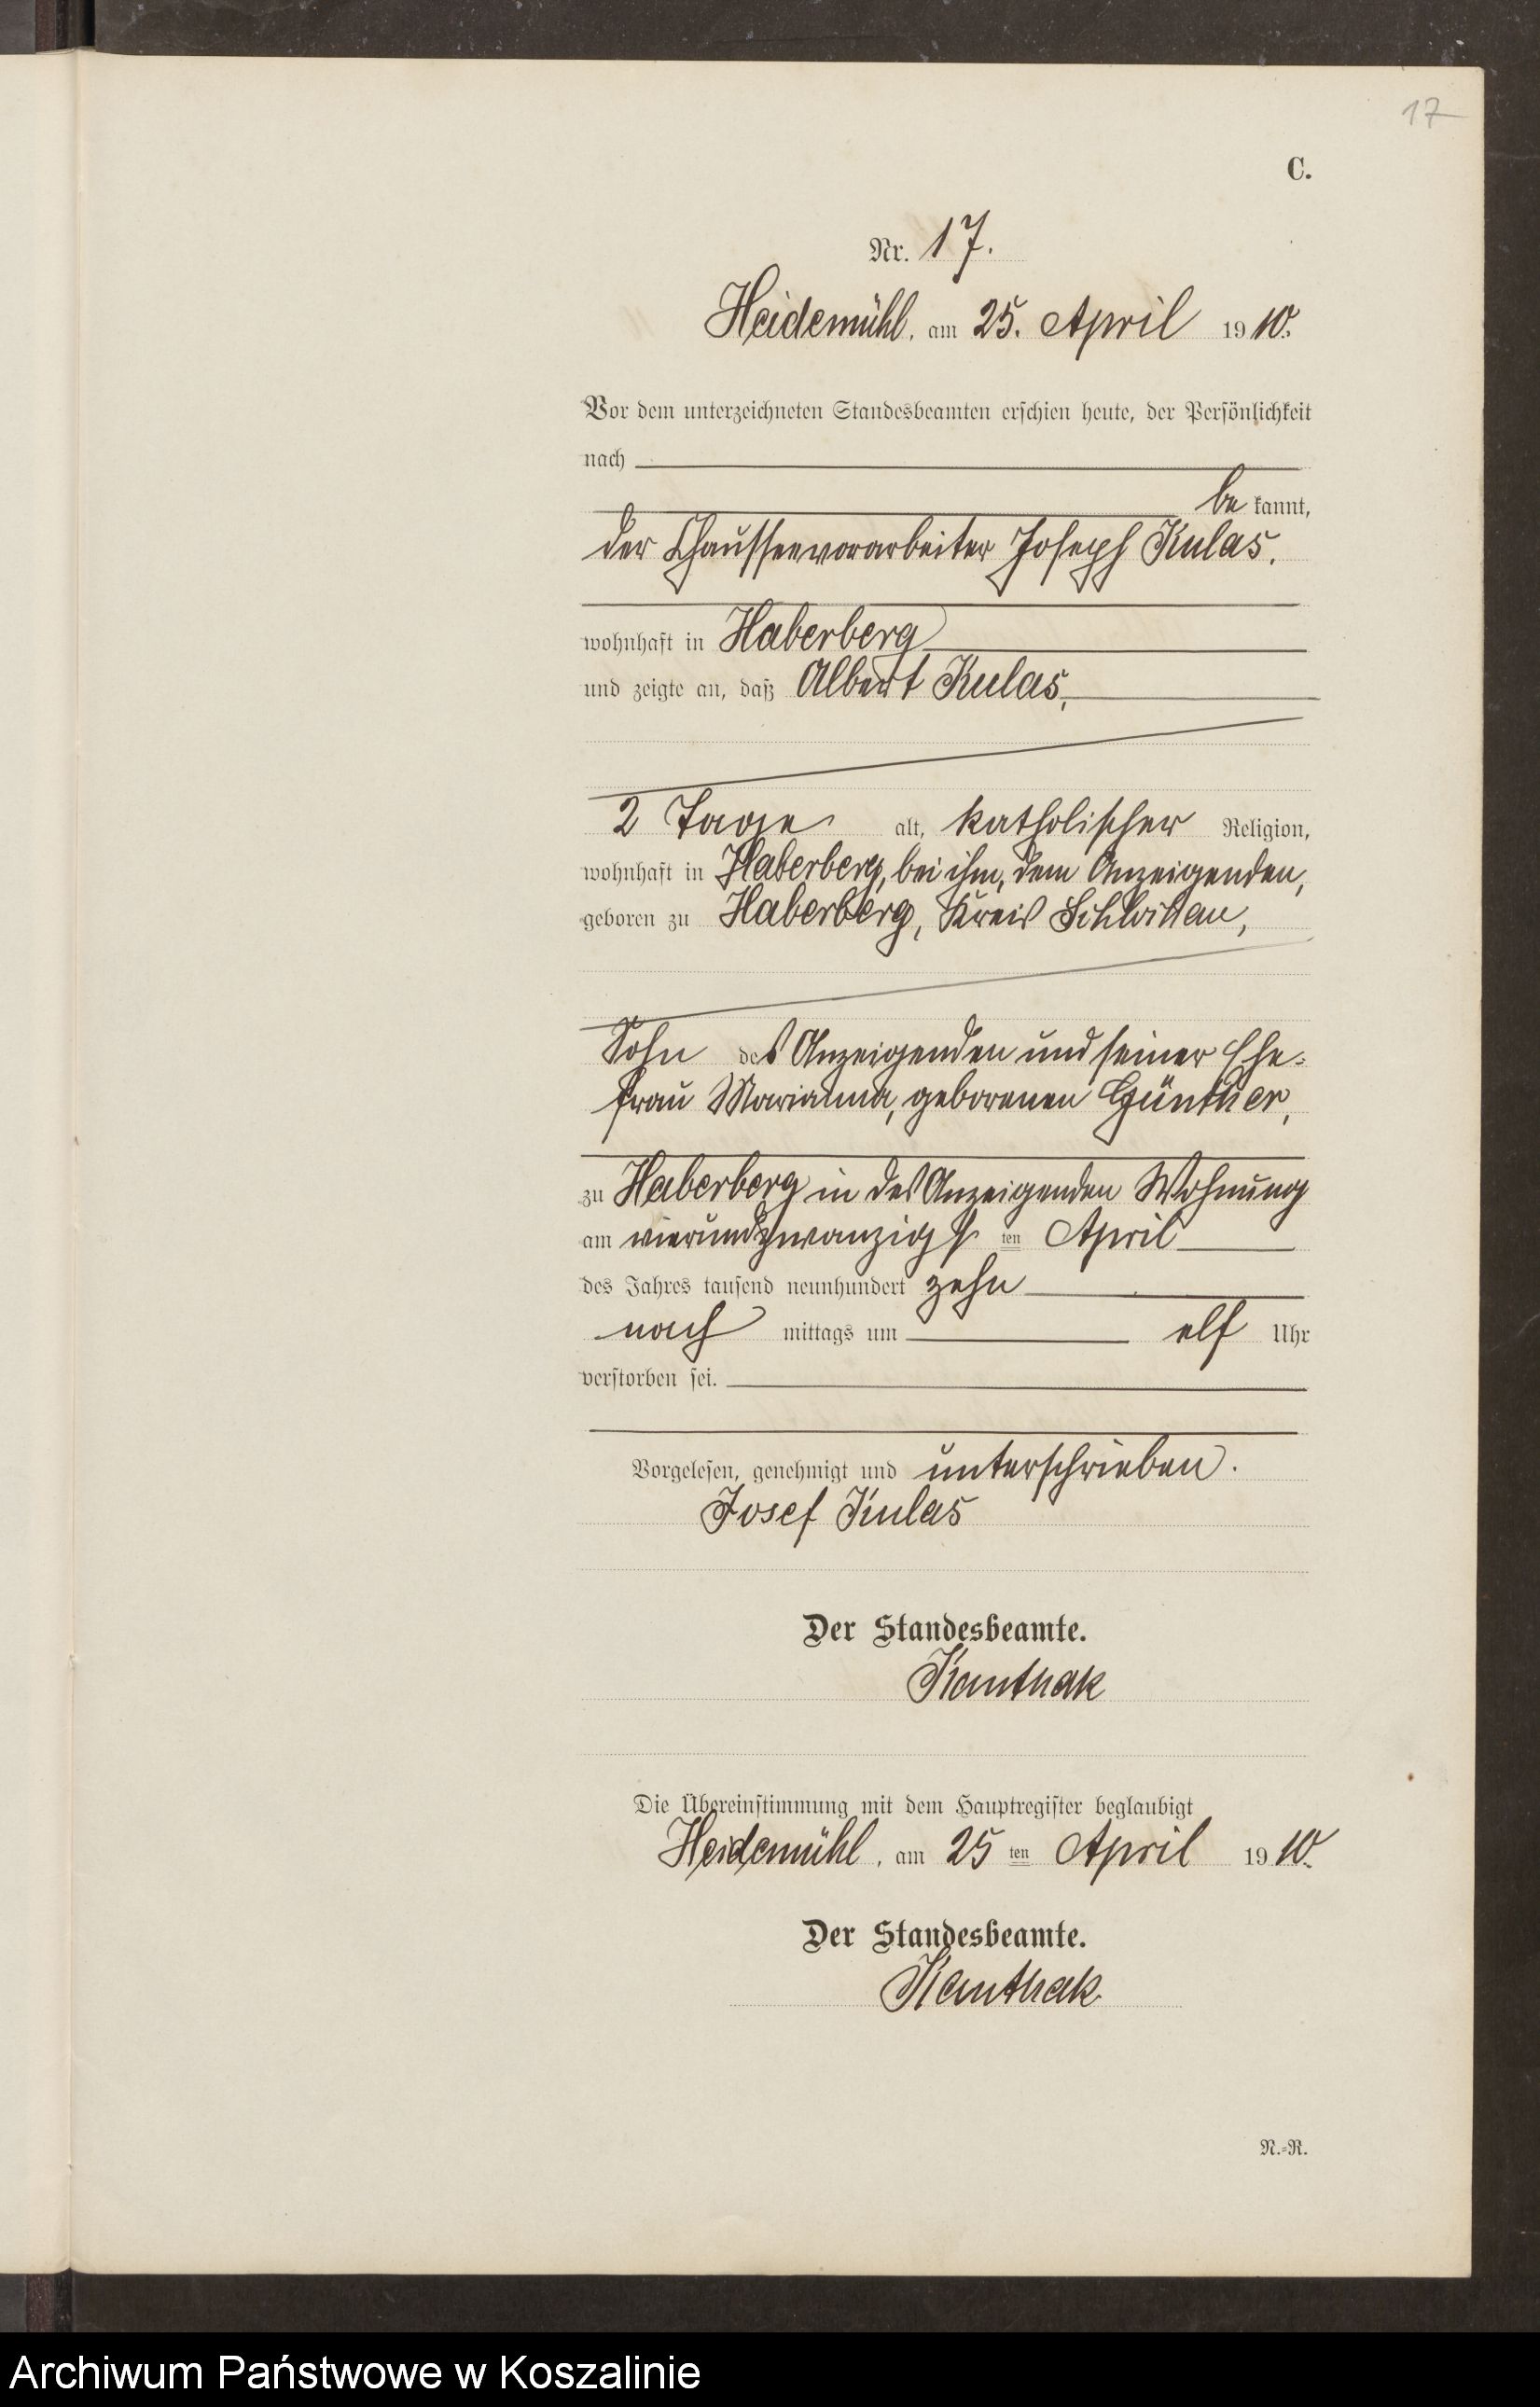 17
C.
Nr. 17.
Heidemühl, am 25. April 1910.
Vor dem unterzeichneten Standesbeamten erschien heute, der Persönlichkeit
nach
bekannt,
der Chausseevorarbeiter Joseph Kulas,
wohnhaft in Haberberg
und zeigte an, daß Albert Kulas,
2 Tage alt, katholischer Religion,
wohnhaft in Haberberg, bei ihm, dem Anzeigenden,
geboren zu Haberberg, Kreis Schlochau,
Sohn des Anzeigenden und seiner Ehe-
frau Marianna, geborenen Günther,
zu Haberberg in des Anzeigenden Wohnung
am vierundzwanzigsten April
des Jahres tausend neunhundert zehn
nach mittags um elf Uhr
verstorben sei.
Vorgelesen, genehmigt und unterschrieben.
Josef Kulas
Der Standesbeamte.
Kanthak
Die Übereinstimmung mit dem Hauptregister beglaubigt
Heidemühl, am 25ten April 1910.
Der Standesbeamte.
Kanthak
N.-R.
Archiwum Państwowe w Koszalinie